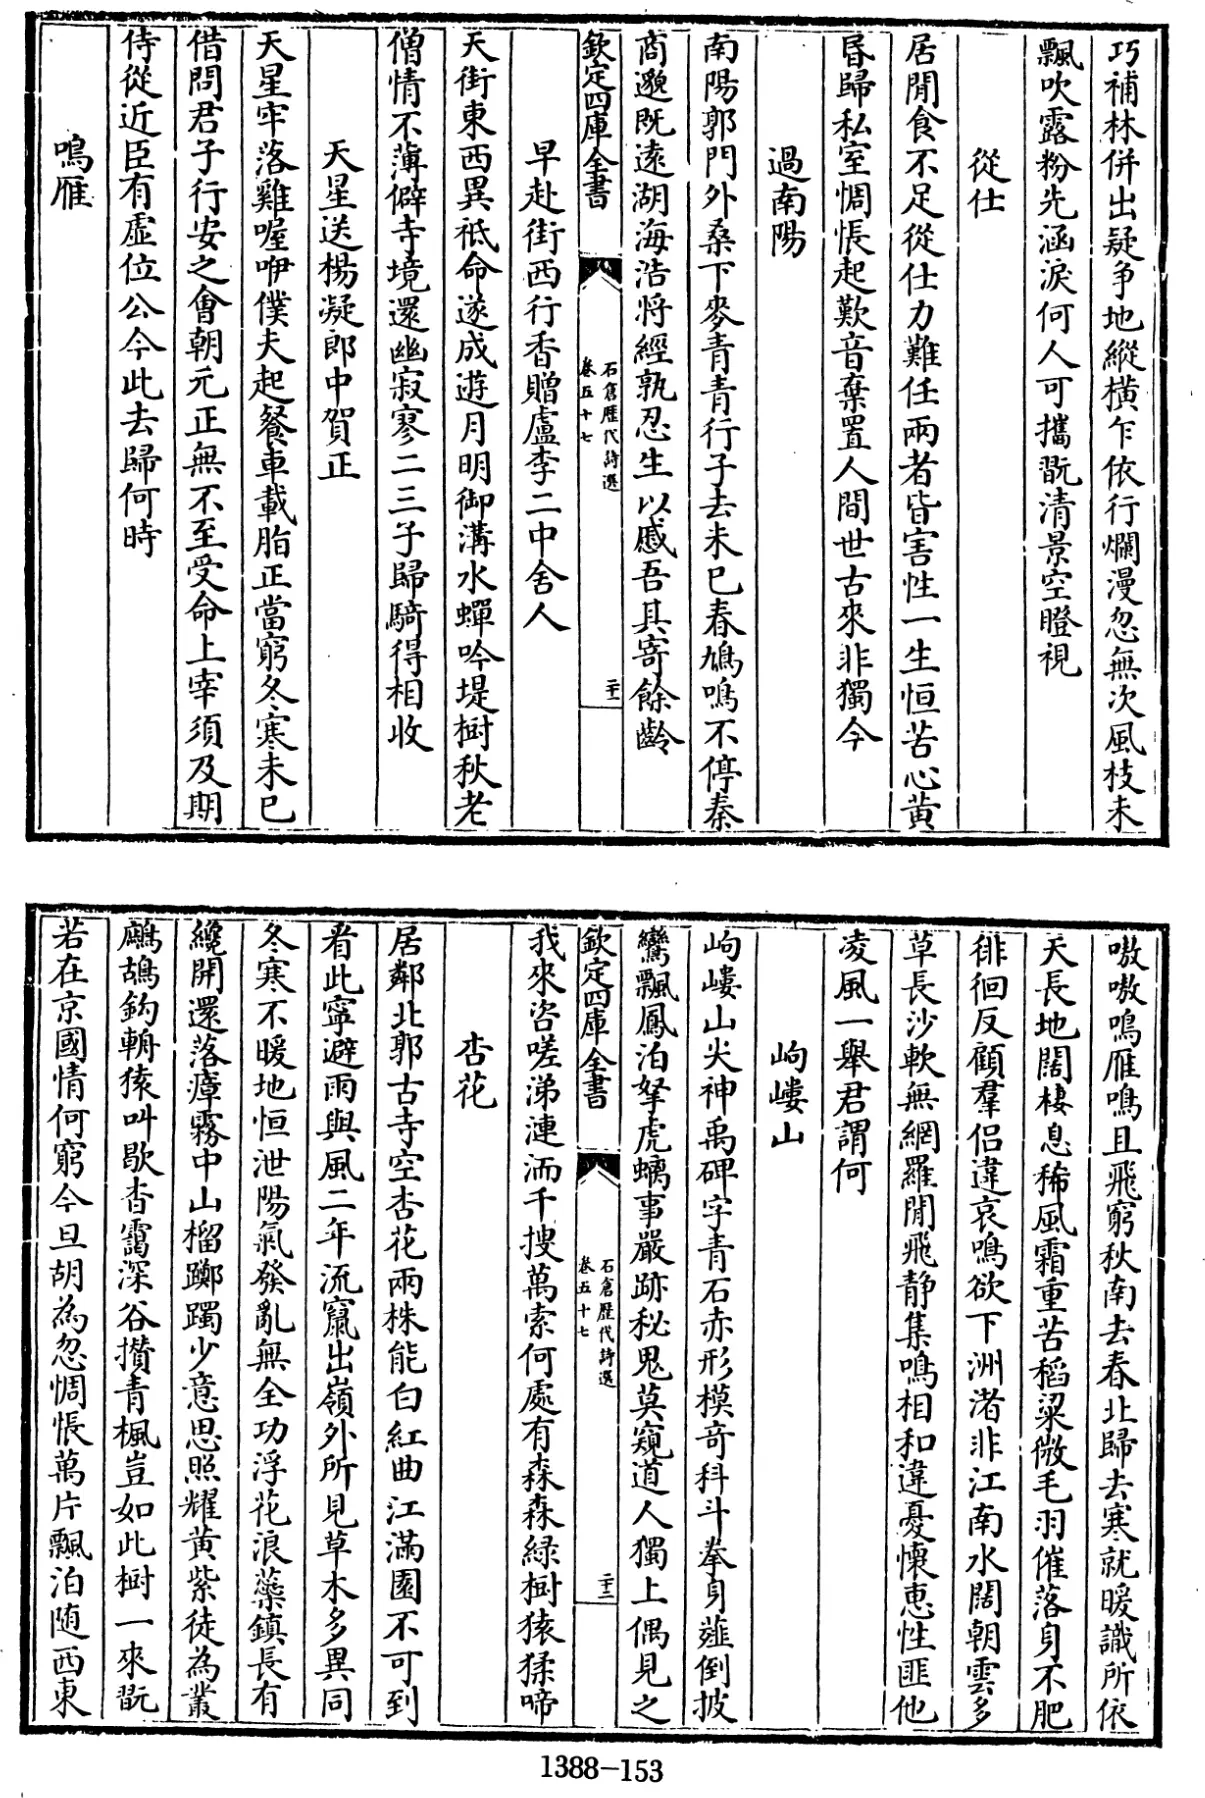 巧補林併出疑争地縱橫乍依行爛漫忽無次風枝未
飄吹露粉先涵淚何人可攜翫清景空瞪視
從仕
居閒食不足從仕力難任兩者皆害性一生恒苦心黄
昏歸私室惆悵起歎音棄置人間世古來非獨今
過南陽
南陽郭門外桑下麥青青行子去未已春鳩鳴不停秦
商邈既遠湖海浩將經孰忍生以慼吾其寄餘齡
欽定四庫全書
石倉歷代詩選
卷五十七
二十一
早赴街西行香贈盧李二中舍人
天街東西異祗命遂成遊月明御溝水蟬吟堤樹秋老
僧情不薄僻寺境還幽寂寥二三子歸騎得相收
天星送楊凝郎中賀正
天星牢落雞喔咿僕夫起餐車載脂正當窮冬寒未已
借問君子行安之會朝元正無不至受命上宰須及期
侍從近臣有虛位公今此去歸何時
鳴雁
嗷嗷鳴雁鳴且飛窮秋南去春北歸去寒就暖識所依
天長地闊棲息稀風霜重苦稻粱微毛羽催落身不肥
徘徊反顧羣侶違哀鳴欲下洲渚非江南水闊朝雲多
草長沙軟無網羅閒飛静集鳴相和違憂懷惠性匪他
凌風一舉君謂何
岣嶁山
岣嶁山尖神禹碑字青石赤形模竒科斗拳身薤倒披
鸞飄鳳泊拏虎螭事嚴跡秘鬼莫窺道人獨上偶見之
欽定四庫全書
石倉歷代詩選
卷五十七
二十二
我來咨嗟涕漣洏千搜萬索何處有森森緑樹猿猱啼
杏花
居鄰北郭古寺空杏花兩株能白紅曲江滿園不可到
看此寧避雨與風二年流竄出嶺外所見草木多異同
冬寒不暖地恒泄陽氣發亂無全功浮花浪蘂鎮長有
纔開還落瘴霧中山榴躑躅少意思照耀黄紫徒為叢
鷓鴣鈎輈猿叫歇杳靄深谷攢青楓豈如此樹一來翫
若在京國情何窮今旦胡為忽惆悵萬片飄泊随西東
1388-153